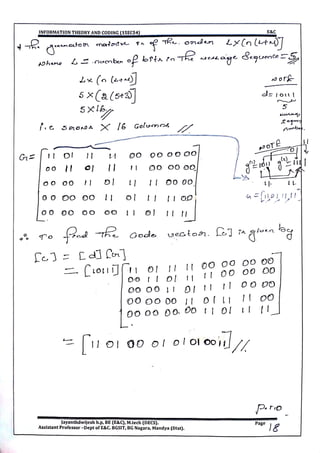 INFORMATION THEORY AND CODING (15EC54) E&C
* The generator matrix is of the order L×[n(L+M)]
where L = number of bits in the message Sequence = 5
L× (n (L+M)) NOTE
5 × (2(5+3)) d=10111
5×16 5
message
Sequence
number.
i.e 5 rows × 16 Columns //
NOTE
G=
11 01 11 11 00 00 00 00
00 11 01 11 11 00 00 00
00 00 11 01 11 11 00 00
00 00 00 11 01 11 11 00
00 00 00 00 11 01 11 11
G = [11,01,11,11]
∴ To find the Code vector [c] is given by
[c] = [d] [G]
= [10111]
11 01 11 11 00 00 00 00
00 11 01 11 11 00 00 00
00 00 11 01 11 11 00 00
00 00 00 11 01 11 11 00
00 00 00 00 11 01 11 11
= [11 01 00 01 01 01 00 11] //
P.T.O
Jayanthdwijesh h.p, BE (E&C), M.tech (DECS). Page
Assistant Professor –Dept of E&C. BGSIT, BG Nagara, Mandya (Dist). 18